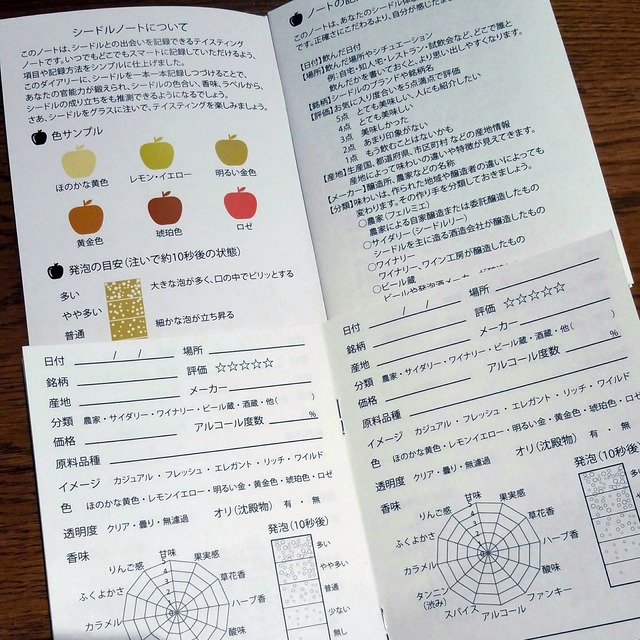 シードルノートについて
このノートは、シードルとの出会いを記録できるテイスティング
ノートです。いつでもどこでもスマートに記録していただけるよう、
項目や記録方法をシンプルに仕上げました。
このダイアリーに、シードルを一本一本記録しつづけることで、
あなたの官能力が鍛えられ、シードルの色合い、香味、ラベルから、
シードルの成り立ちをも推測できるようになるでしょう。
さあ、シードルをグラスに注いで、テイスティングを楽しみましょう。
色サンプル
ほのかな黄色
レモン・イエロー
明るい金色
黄金色
琥珀色
ロゼ
発泡の目安(注いで約10秒後の状態)
多い
大きな泡が多く、口の中でピリッとする
やや多い
普通
細かな泡が立ち昇る
このノートは、あなたのシードル体
です。正確さにこだわるより、自分が感じたま
【日付】飲んだ日付
【場所】飲んだ場所やシチュエーション
例:自宅・知人宅・レストラン・試飲会など、どこで誰と
飲んだかを書いておくと、より思い出しやすくなります。
【銘柄】シードルのブランドや銘柄名
【評価】お気に入り度合いを5点満点で評価
5点 とても美味しい、人にも紹介したい
4点 とても美味しい
3点 美味しかった
2点 あまり印象がない
1点 もう飲むことはないかも
【産地】生産国、都道府県、市区町村 などの産地情報
産地によって味わいの違いや特徴が見えてきます。
【メーカー】醸造所、農家などの名称
【分類】味わいは、作られた地域や醸造者の違いによっても
変わります。その作り手を分類しておきましょう。
○農家(フェルミエ)
農家による自家醸造または委託醸造したもの
○サイダリー(シードルリー)
シードルを主に造る酒造会社が醸造したもの
○ワイナリー
ワイナリー、ワイン工房が醸造したもの
○ビール蔵
日付 / / 場所
銘柄 評価 ☆☆☆☆☆
産地 メーカー
分類 農家・サイダリー・ワイナリー・ビール蔵・酒蔵・他( )
価格 アルコール度数 %
原料品種
イメージ カジュアル・フレッシュ・エレガント・リッチ・ワイルド
色 ほのかな黄色・レモンイエロー・明るい金・黄金色・琥珀色・ロゼ
透明度 クリア・曇り・無濾過 オリ(沈殿物) 有・無
香味 発泡(10秒後)
甘味
果実感
草花香
ハーブ香
酸味
りんご感
ふくよかさ
カラメル
5
4
3
2
多い
やや多い
普通
少ない
無し
日付 / / 場所
銘柄 評価 ☆☆☆☆☆
産地 メーカー
分類 農家・サイダリー・ワイナリー・ビール蔵・酒蔵・他( )
価格 アルコール度数 %
原料品種
イメージ カジュアル・フレッシュ・エレガント・リッチ・ワイルド
色 ほのかな黄色・レモンイエロー・明るい金・黄金色・琥珀色・ロ
透明度 クリア・曇り・無濾過 オリ(沈殿物) 有・無
香味 発泡(10秒後
甘味
果実感
草花香
ハーブ香
酸味
ファンキー
アルコール
スパイス
タンニン
(渋み)
カラメル
ふくよかさ
りんご感
5
4
3
2